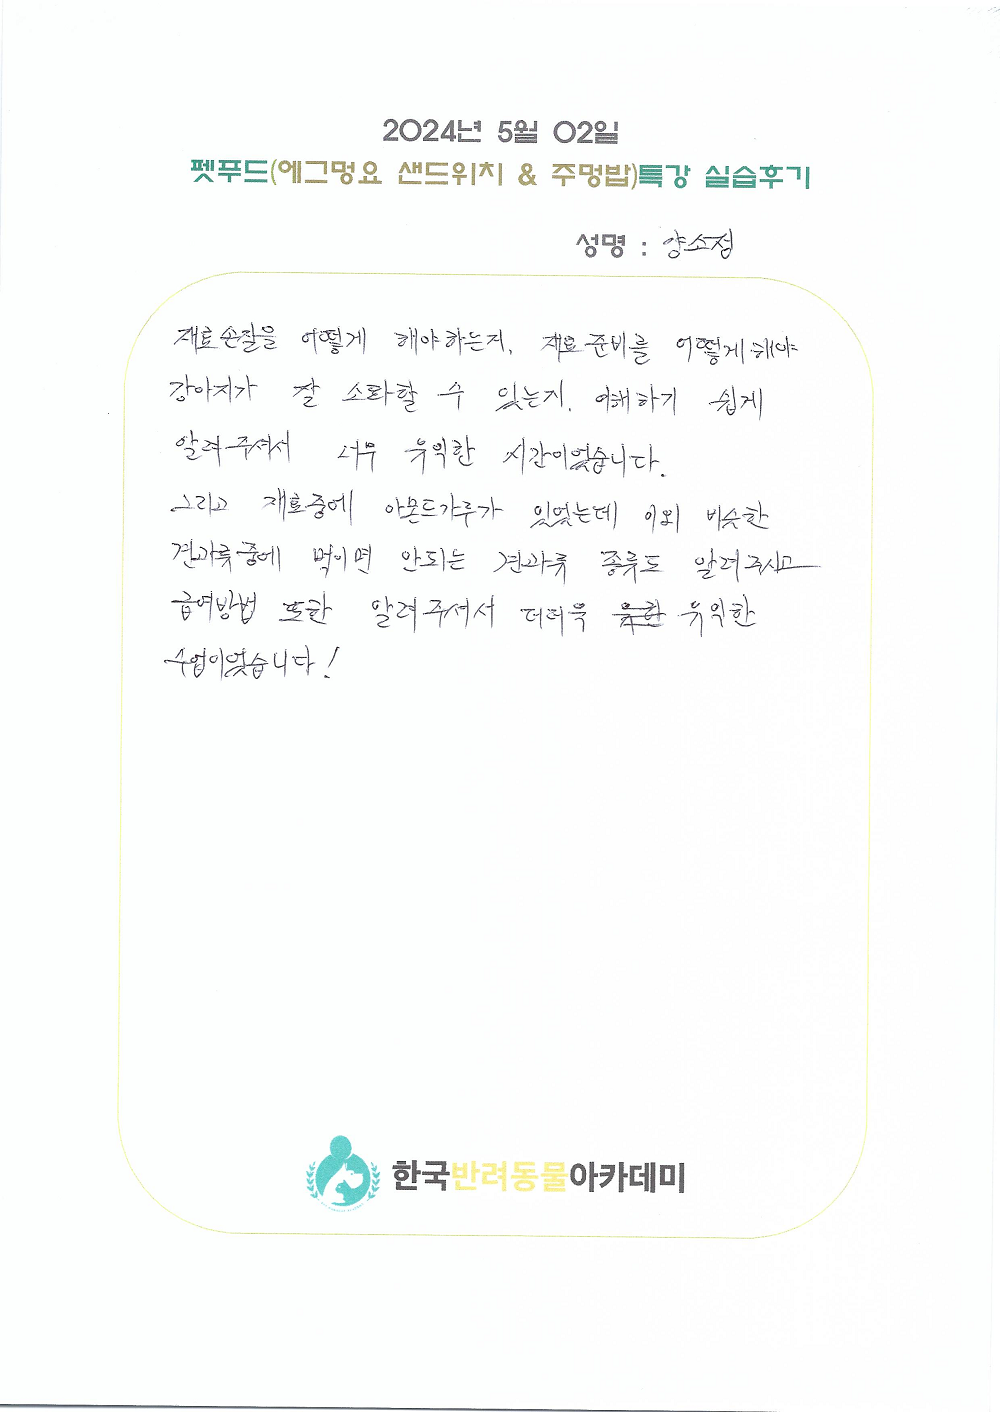 2024년 5월 02일
펫푸드(에그멍요 샌드위치 & 주멍밥)특강 실습후기
성명 : 양소정
재료손질을 어떻게 해야하는지, 재료준비를 어떻게해야
강아지가 잘 소화할 수 있는지, 이해하기 쉽게
알려주셔서 너무 유익한 시간이었습니다.
그리고 재료중에 아몬드가루가 있었는데 이외 비슷한
견과류중에 먹이면 안되는 견과류 종류도 알려주시고
급여방법 또한 알려주셔서 더더욱 유익한
수업이었습니다!
한국반려동물아카데미